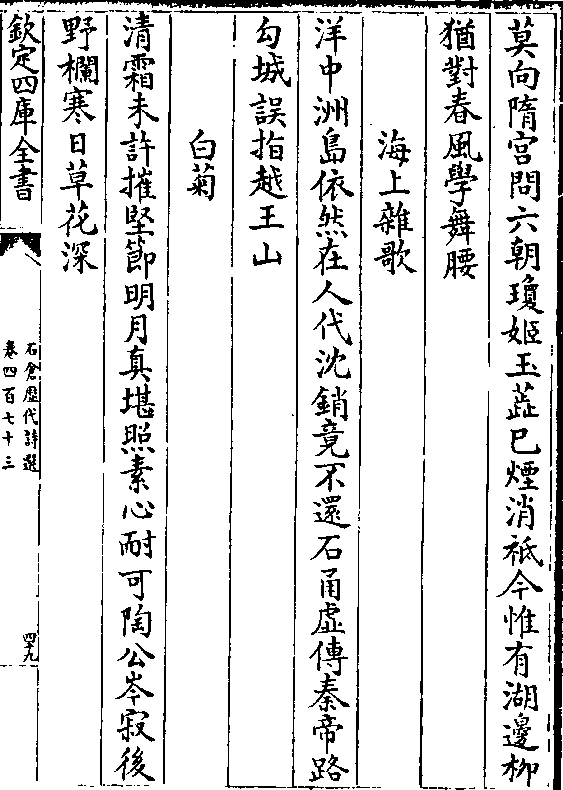 莫向隋宮問六朝瓊姬玉蘂已煙消祗今惟有湖邊柳
猶對春風學舞腰
海上雜歌
洋中洲島依然在人代沈銷竟不還石甬虛傳秦帝路
勾城誤指越王山
白菊
清霜未許摧堅節明月真堪照素心耐可陶公岑寂後
野欄寒日草花深
欽定四庫全書
石倉歷代詩選
卷四百七十三
四九